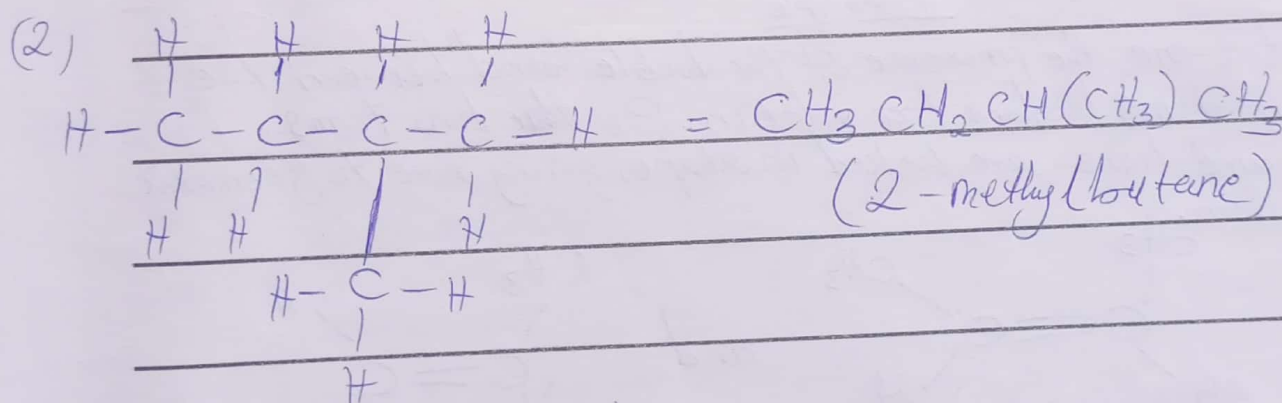 (2) H H H H
H - C - C - C - C - H = CH₃ CH₂ CH(CH₃) CH₃
H H H (2-methylbutane)
H - C - H
H